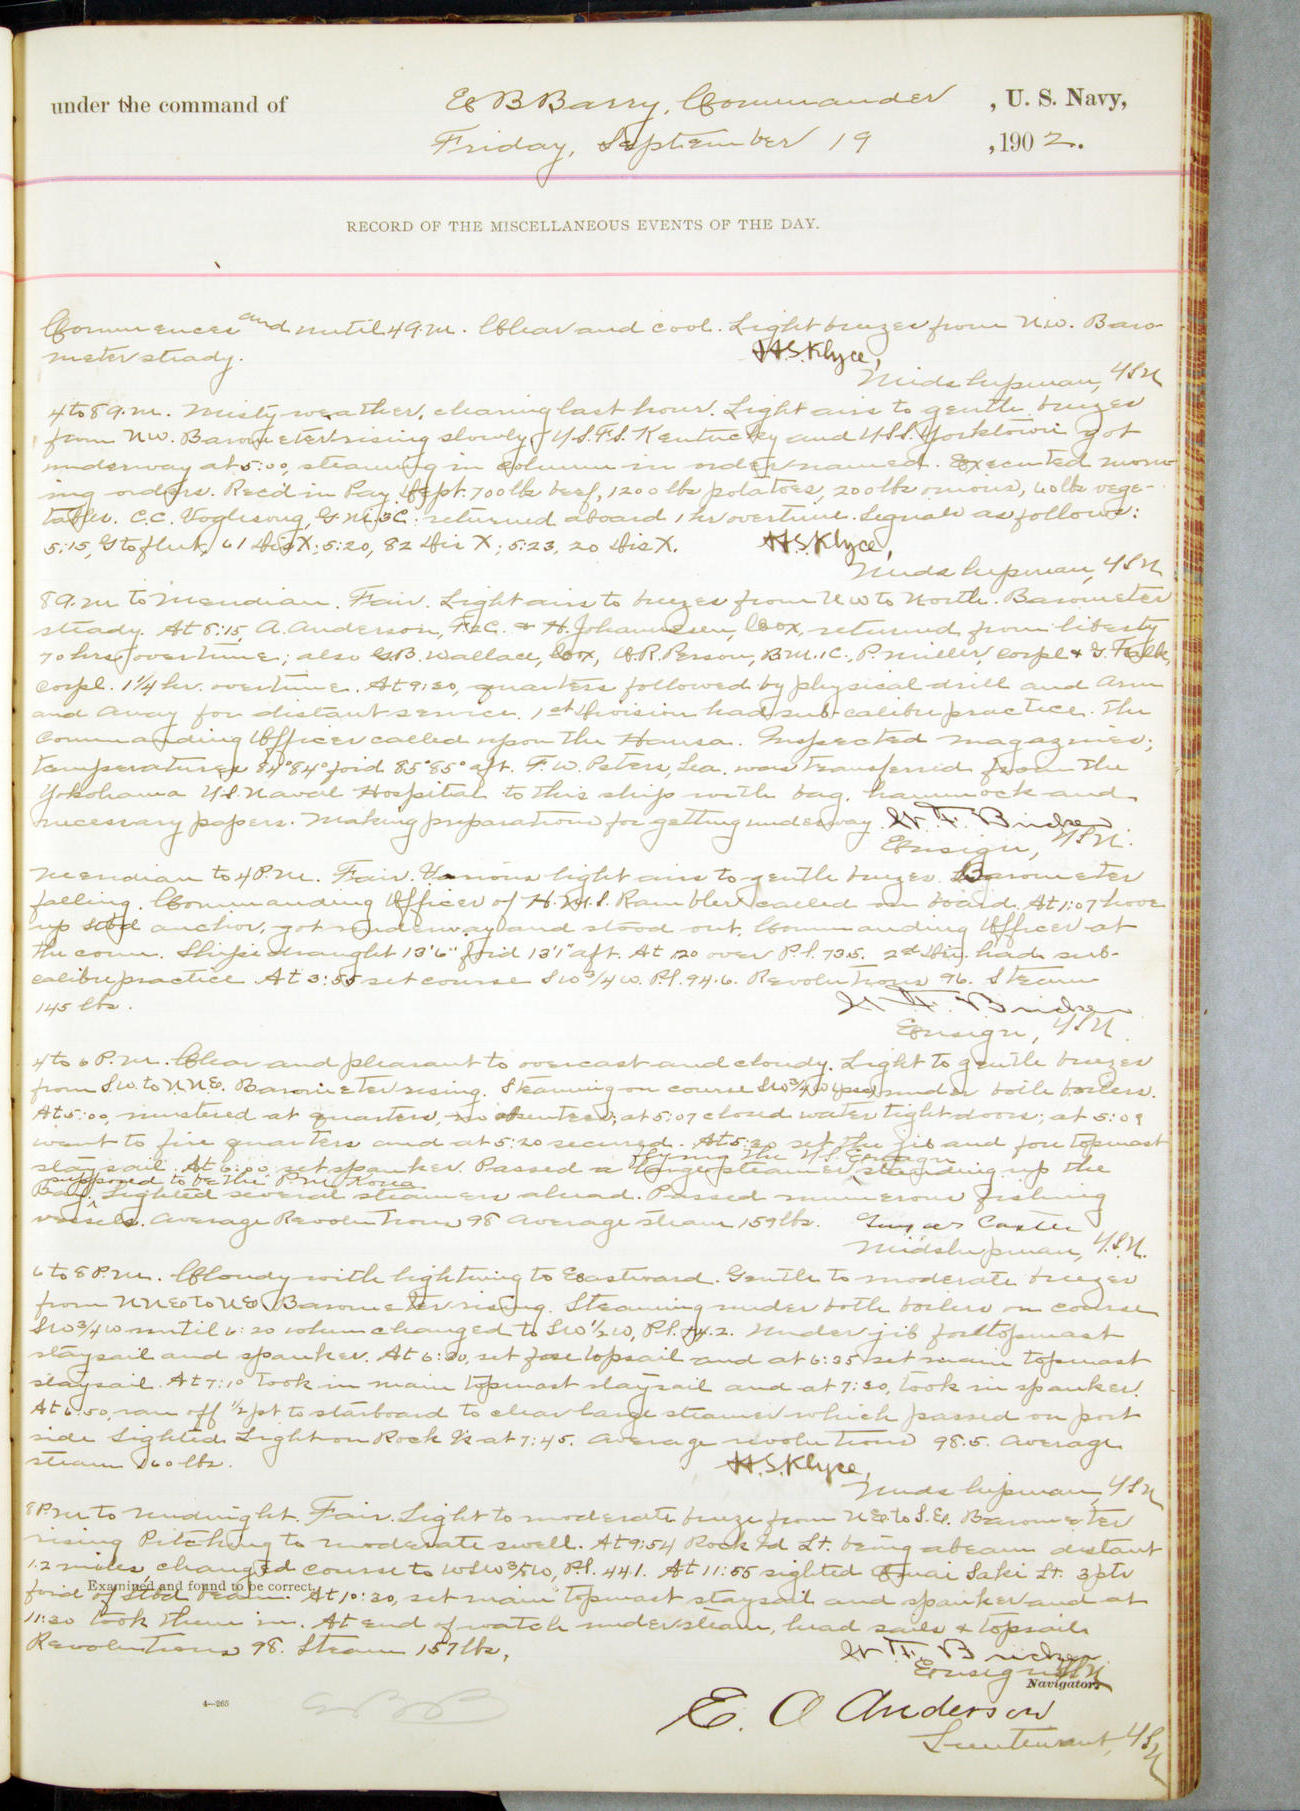 under the command of E B Barry, Commander , U. S. Navy,
Friday, September 19 , 1902.
RECORD OF THE MISCELLANEOUS EVENTS OF THE DAY.
Commences and until 4 A.M. Clear and cool. Light breezes from NW. Baro-
meter steady.
H.S. Klyce,
Midshipman, USN
4 to 8 A.M. Misty weather, clearing last hour. Light airs to gentle breezes
from NW. Barometer rising slowly. U.S.F.S. Kentucky and U.S.S. Yorktown got
underway at 5:00, steaming in column in order named. Executed morn-
ing orders. Rec'd in Pay Dept. 700 lbs beef, 1200 lbs potatoes, 200 lbs onions, 60 lbs vege-
tables. C.C. Voglesong, G.M. 3C. returned aboard 1 hr overtime. Signals as follows:
5:15, G to fleet, 61 Dis X; 5:20, 82 Dis X; 5:23, 20 Dis X.
H.S. Klyce,
Midshipman, USN
8 A.M. to Meridian. Fair. Light airs to breezes from NW to North. Barometer
steady. At 8:15, A. Anderson, F2C. & H. Johannesen, Cox, returned from liberty
70 hrs overtime; also G.B. Wallace, Cox, A.R. Person, B.M. 1C., P. Miller, Corpl &
Corpl. 1 1/4 hr. overtime. At 9:30, quarters followed by physical drill and Arm
and Away for distant service. 1st Division had sub-calibre practice. The
Commanding Officer called upon the Hansa. Inspected magazines;
temperatures 84° 84° for'd 85° 85° aft. F. W. Peters, Sea. was transferred from the
Yokohama U.S. Naval Hospital to this ship with bag, hammock and
necessary papers. Making preparations for getting underway.
Ensign, USN.
Meridian to 4 P.M. Fair. Various light airs to gentle breezes. Barometer
falling. Commanding Officer of H.M.S. Rambler called on board. At 1:07 hove
up stbd anchor, got underway and stood out, Commanding Officer at
the conn. Ships draught 13'6" for'd 13'1" aft. At 1:20 over P.l. 73.5. 2nd Div. had sub-
calibre practice. At 3:55 set course SW 3/4 W. P.l. 94.6. Revolutions 96. Steam
145 lbs.
Ensign, USN.
4 to 6 P.M. Clear and pleasant to overcast and cloudy. Light to gentle breezes
from SW. to NNE. Barometer rising. Steaming on course SW 3/4 W under both boilers.
At 5:00, mustered at quarters, no absentees; at 5:07 closed water tight doors; at 5:09
went to fire quarters and at 5:20 secured. At 5:30 set the jib and fore topmast
staysail. At 6:00 set spanker. Passed a large steamer flying the U.S. Ensign standing up the
Bay supposed to be the P.M. Korea. Sighted several steamers ahead. Passed numerous fishing
vessels. Average Revolutions 98 Average steam 159 lbs.
Midshipman, U.S.N.
6 to 8 P.M. Cloudy with lightning to Eastward. Gentle to moderate breezes
from NNE to NE. Barometer rising. Steaming under both boilers on course
SW 3/4 W until 6:20 when changed to SW 1/2 W, P.l. 14.2. Under jib fore topmast
staysail and spanker. At 6:30, set fore topsail and at 6:35 set main topmast
staysail. At 7:10 took in main topmast staysail and at 7:30, took in spanker.
At 6:50, ran off 1/2 pt. to starboard to clear large steamer which passed on port
side. Sighted Light on Rock Is. at 7:45. Average revolutions 98.5. Average
steam 160 lbs.
H.S. Klyce,
Midshipman, USN
8 P.M. to Midnight. Fair. Light to moderate breeze from NE. to S.E. Barometer
rising. Pitching to moderate swell. At 9:54 Rock Id Lt. being abeam distant
1.2 miles, changed course to WSW 3/8 W, P.l. 44.1. At 11:55 sighted Omai Saki Lt. 3 pts
for'd of stbd beam. At 10:30, set main topmast staysail and spanker and at
11:30 took them in. At end of watch under steam, head sails & topsails
Revolutions 98. Steam 157 lbs.
Ensign USN
Examined and found to be correct.
Navigator.
E. A. Anderson
Lieutenant, USN
4—265
EBB